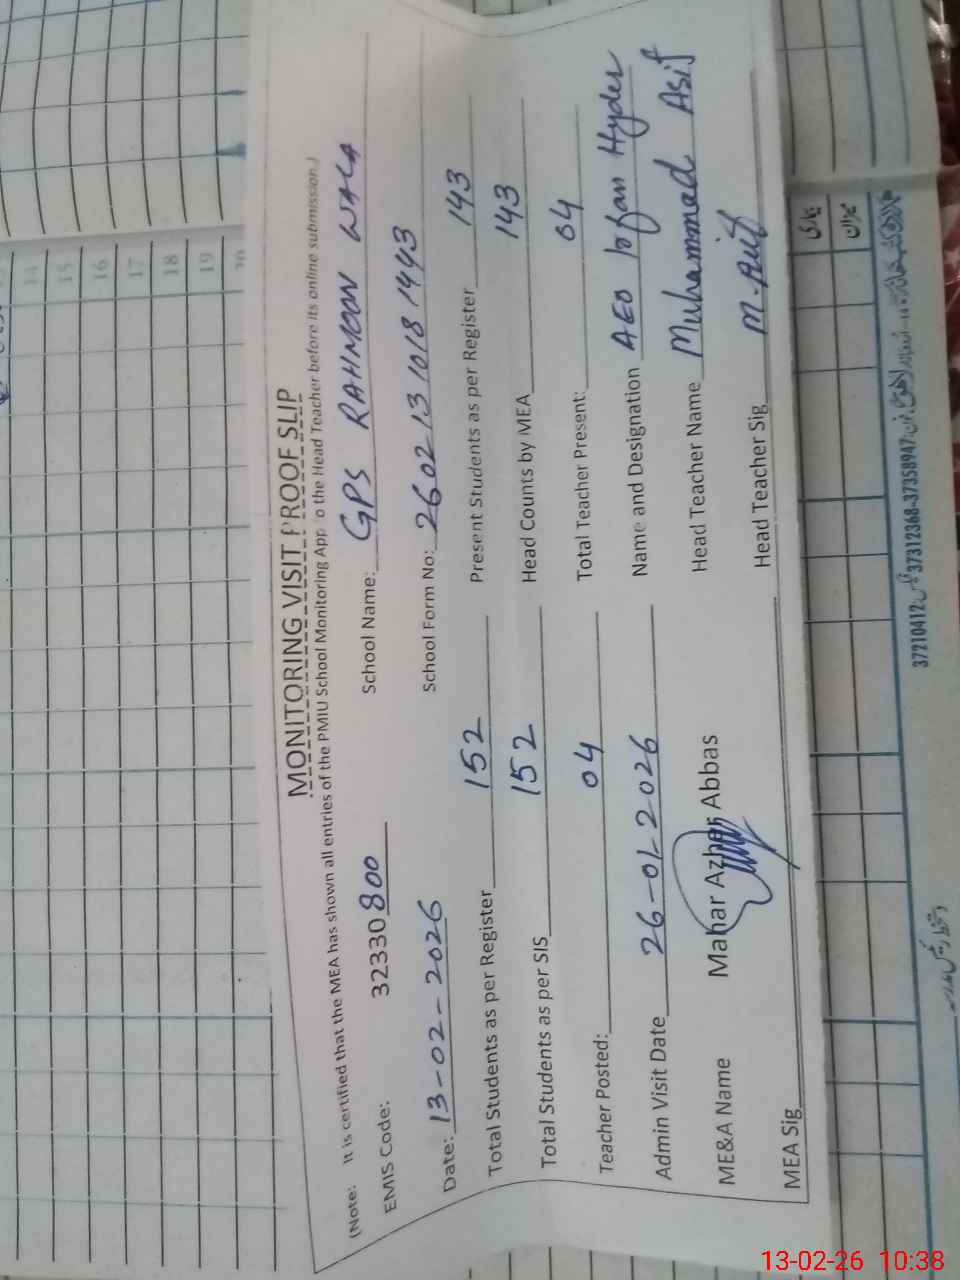 MONITORING VISIT PROOF SLIP
(Note: It is certified that the MEA has shown all entries of the PMIU School Monitoring App to the Head Teacher before its online submission.)
EMIS Code: 32330800 School Name: GPS RAHMOON WALA
Date: 13-02-2026 School Form No: 2602131018 1443
Total Students as per Register 152 Present Students as per Register 143
Total Students as per SIS 152 Head Counts by MEA 143
Teacher Posted: 04 Total Teacher Present: 04
Admin Visit Date 26-01-2026 Name and Designation AEO Irfan Hyder
ME&A Name Mahar Azher Abbas Head Teacher Name Muhammed Asif
MEA Sig Head Teacher Sig M. Asif
14
15
16
17
18
19
20
37210412 37312368-37358947
13-02-26 10:38